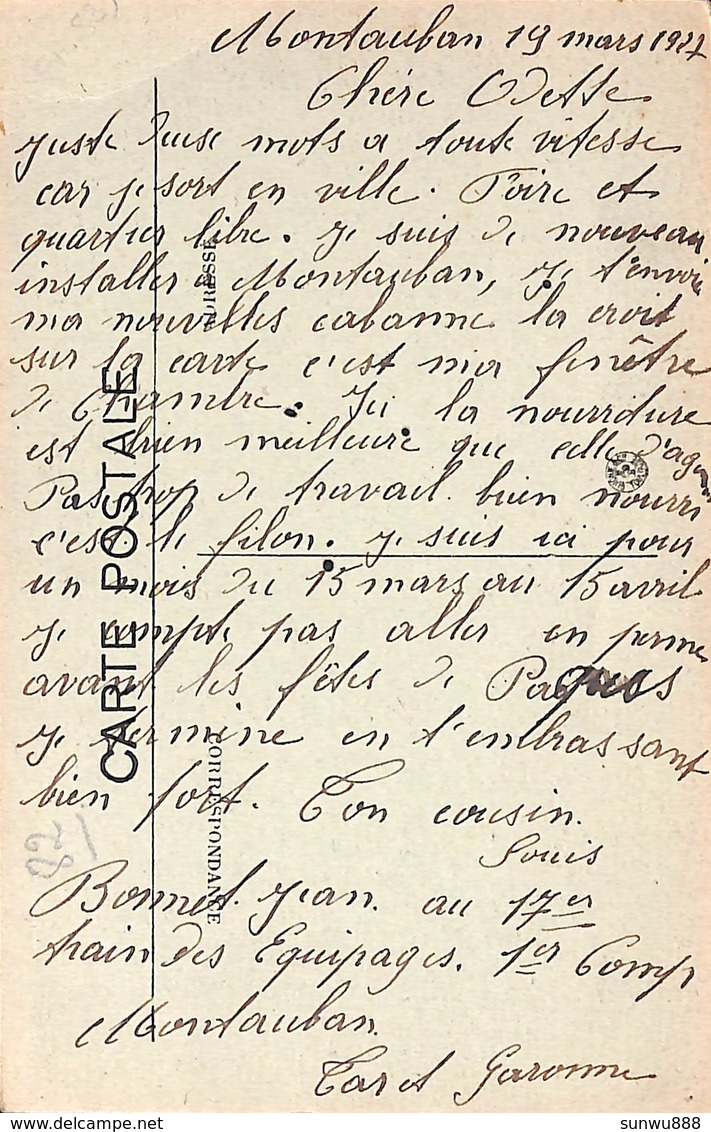 Montauban 19 mars 1927
Chère Odette
juste deuse mots a toute vitesse
car je sort en ville. Foire et
quartier libre. je suis de nouveau
installer a Montauban, je t'envoie
ma nouvelles cabanne la croit
sur la carte c'est ma fenêtre
de chambre. Ici la nourriture
est bien meilleure que celle d'agen
Pas trop de travail bien nourri
c'est le filon. je suis ici pour
un mois du 15 mars au 15 avril
je compte pas aller en perme
avant les fêtes de Paques
je termine en t'embrassant
bien fort. Ton cousin.
Louis
Bonnet Jean. au 17er
train des Equipages. 1er Comp
Montauban.
Tar et Garonne
CARTE POSTALE
ADRESSE
CORRESPONDANCE
82
sunwu888